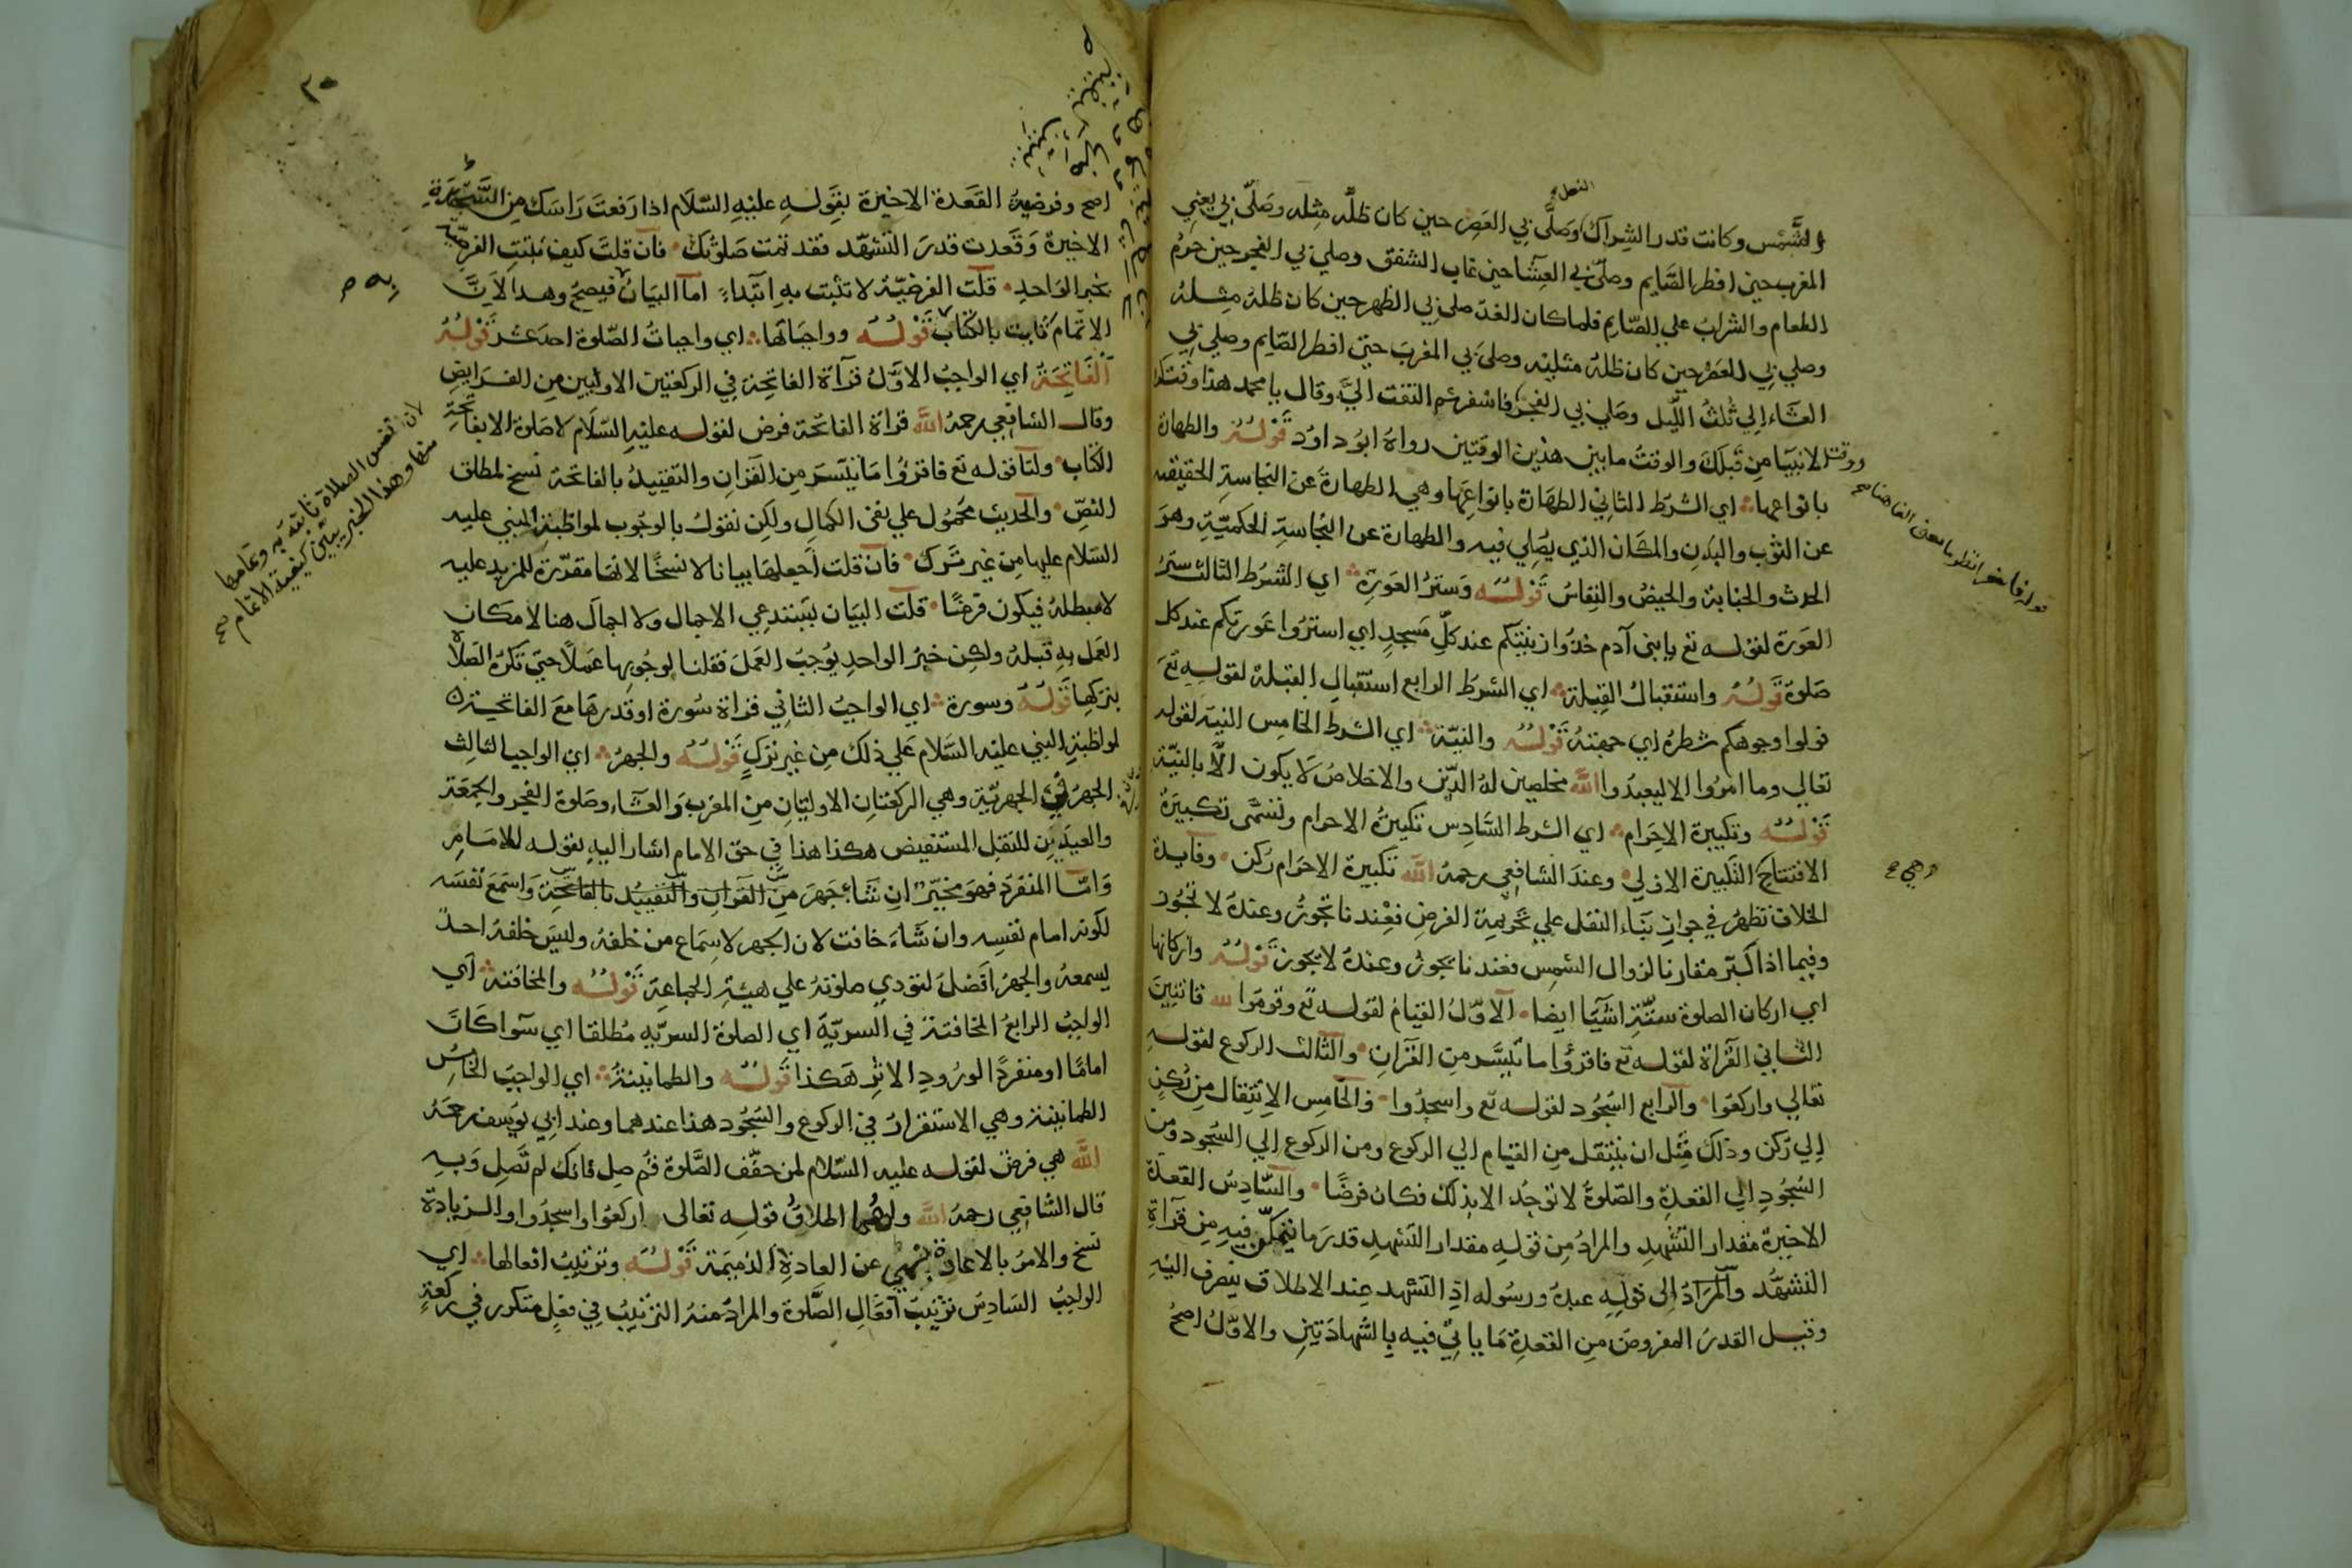 الشمس وكانت قدر الشراك وصلى بي العصر حين كان ظله مثله وصلى بي يعني
المغرب حين افطر الصايم وصلى بي العشا حين غاب الشفق وصلى بي الفجر حين حرم
الطعام والشراب علي الصايم فلما كان الغد صلى بي الظهر حين كان ظله مثله
وصلي بي العصر حين كان ظله مثليه وصلى بي المغرب حين افطر الصايم وصلي بي
العشاء الي ثلث الليل وصلي بي الفجر فاسفر ثم التفت الي وقال يا محمد هذا وقت
الانبيا من قبلك والوقت ما بين هذين الوقتين رواه ابو داود قوله والطهارة
بانواعها اي الشرط الثاني الطهارة بانواعها وهي الطهارة عن النجاسة الحقيقيه
عن الثوب والبدن والمكان الذي يصلي فيه والطهارة عن النجاسة الحكمية وهو
الحدث والجنابة والحيض والنفاس قوله وستر العورة اي الشرط الثالث ستر
العورة لقوله تع يا بني آدم خذوا زينتكم عند كل مسجد اي استروا عورتكم عند كل
صلوة قوله واستقبال القبلة اي الشرط الرابع استقبال القبلة لقوله تع
فولوا وجوهكم شطره اي جهته قوله والنية اي الشرط الخامس النية لقوله
تعالي وما امروا الا ليعبدوا الله مخلصين له الدين والاخلاص لا يكون الا بالنية
قوله وتكبيرة الاحرام اي الشرط السادس تكبيرة الاحرام وتسمى تكبيرة
الافتتاح التكبيرة الاولي وعند الشافعي رحمه الله تكبيرة الاحرام ركن وفايدة
الخلاف تظهر في جواز بناء النفل علي تحريمة الفرض فعندنا تجوز وعنده لا تجوز
وفيما اذا كبر مقارنا لزوال الشمس فعندنا يجوز وعنده لا يجوز قوله واركانها
اي اركان الصلوة ستة اشيا ايضا الاول القيام لقوله تع وقوموا لله قانتين
الثاني القراة لقوله تع فاقرؤا ما تيسر من القران والثالث الركوع لقوله
تعالي واركعوا والرابع السجود لقوله تع واسجدوا والخامس الانتقال من ركن
الي ركن وذلك مثل ان ينتقل من القيام الي الركوع ومن الركوع الي السجود ومن
السجود الي القعدة والصلوة لا توجد الا بذلك فكان فرضا والسادس القعدة
الاخيرة مقدار التشهد والمراد من قوله مقدار التشهد قدر ما يتمكن فيه من قرآة
التشهد والمراد الى قوله عبده ورسوله اذ التشهد عند الاطلاق ينصرف اليه
وقيل القدر المفروض من القعدة ما ياتي فيه بالشهادتين والاول اصح
وهي
٣٠
اصح وفرضية القعدة الاخيرة بقوله عليه السلام اذا رفعت راسك من السجدة
الاخيرة وقعدت قدر التشهد فقد تمت صلوتك فان قلت كيف تثبت الفرضية
بخبر الواحد قلت الفرضية لا تثبت به ابتداء اما البيان فيصح وهذا لان
الاتمام ثابت بالكتاب قوله وواجباتها اي واجبات الصلوة احد عشر قوله
الفاتحة اي الواجب الاول قرآة الفاتحة في الركعتين الاوليين من الفرايض
وقال الشافعي رحمه الله قراة الفاتحة فرض لقوله عليه السلام لا صلوة الا بفاتحة
الكتاب ولنا قوله تع فاقرؤا ما تيسر من القران والتقييد بالفاتحة نسخ لمطلق
النص والحديث محمول علي نفي الكمال ولكن نقول بالوجوب لمواظبة النبي عليه
السلام عليها من غير ترك فان قلت اجعلها بيانا لا نسخا لانها مقدرة للمزيد عليه
لا مبطلة فيكون فرضا قلت البيان يستدعي الاجمال ولا اجمال هنا لامكان
العمل به قبله ولكن خبر الواحد يوجب العمل فقلنا لوجوبها عملا حتى تكره الصلاة
بتركها قوله وسورة اي الواجب الثاني قراة سورة او قدرها مع الفاتحة
لمواظبة النبي عليه السلام علي ذلك من غير ترك قوله والجهر اي الواجب الثالث
الجهر في الجهرية وهي الركعتان الاوليان من المغرب والعشاء وصلوة الفجر والجمعة
والعيدين للنقل المستفيض هكذا هذا في حق الامام اشار اليه بقوله للامام
واما المنفرد فهو مخير ان شاء جهر من القران والتقييد بالفاتحة واسمع نفسه
لكونه امام نفسه وان شاء خافت لان الجهر لاسماع من خلفه وليس خلفه احد
يسمعه والجهر افضل لتودي صلوته علي هيئة الجماعة قوله والمخافتة اي
الواجب الرابع المخافتة في السرية اي الصلوة السرية مطلقا اي سوا كان
اماما او منفردا لورود الاثر هكذا قوله والطمانينة اي الواجب الخامس
الطمانينة وهي الاستقرار في الركوع والسجود هذا عندهما وعند ابي يوسف رحمه
الله هي فرض لقوله عليه السلام لمن خفف الصلاة قم صل فانك لم تصل وبه
قال الشافعي رحمه الله ولهما اطلاق قوله تعالى اركعوا واسجدوا والزيادة
نسخ والامر بالاعادة نهي عن العادة الذميمة قوله وترتيب افعالها اي
الواجب السادس ترتيب افعال الصلوة والمراد منه الترتيب في فعل متكرر في ركعة
لان نفس الصلاة ثابتة به وتمامها
منها وهذا الخبر يبين كيفية الاتمام